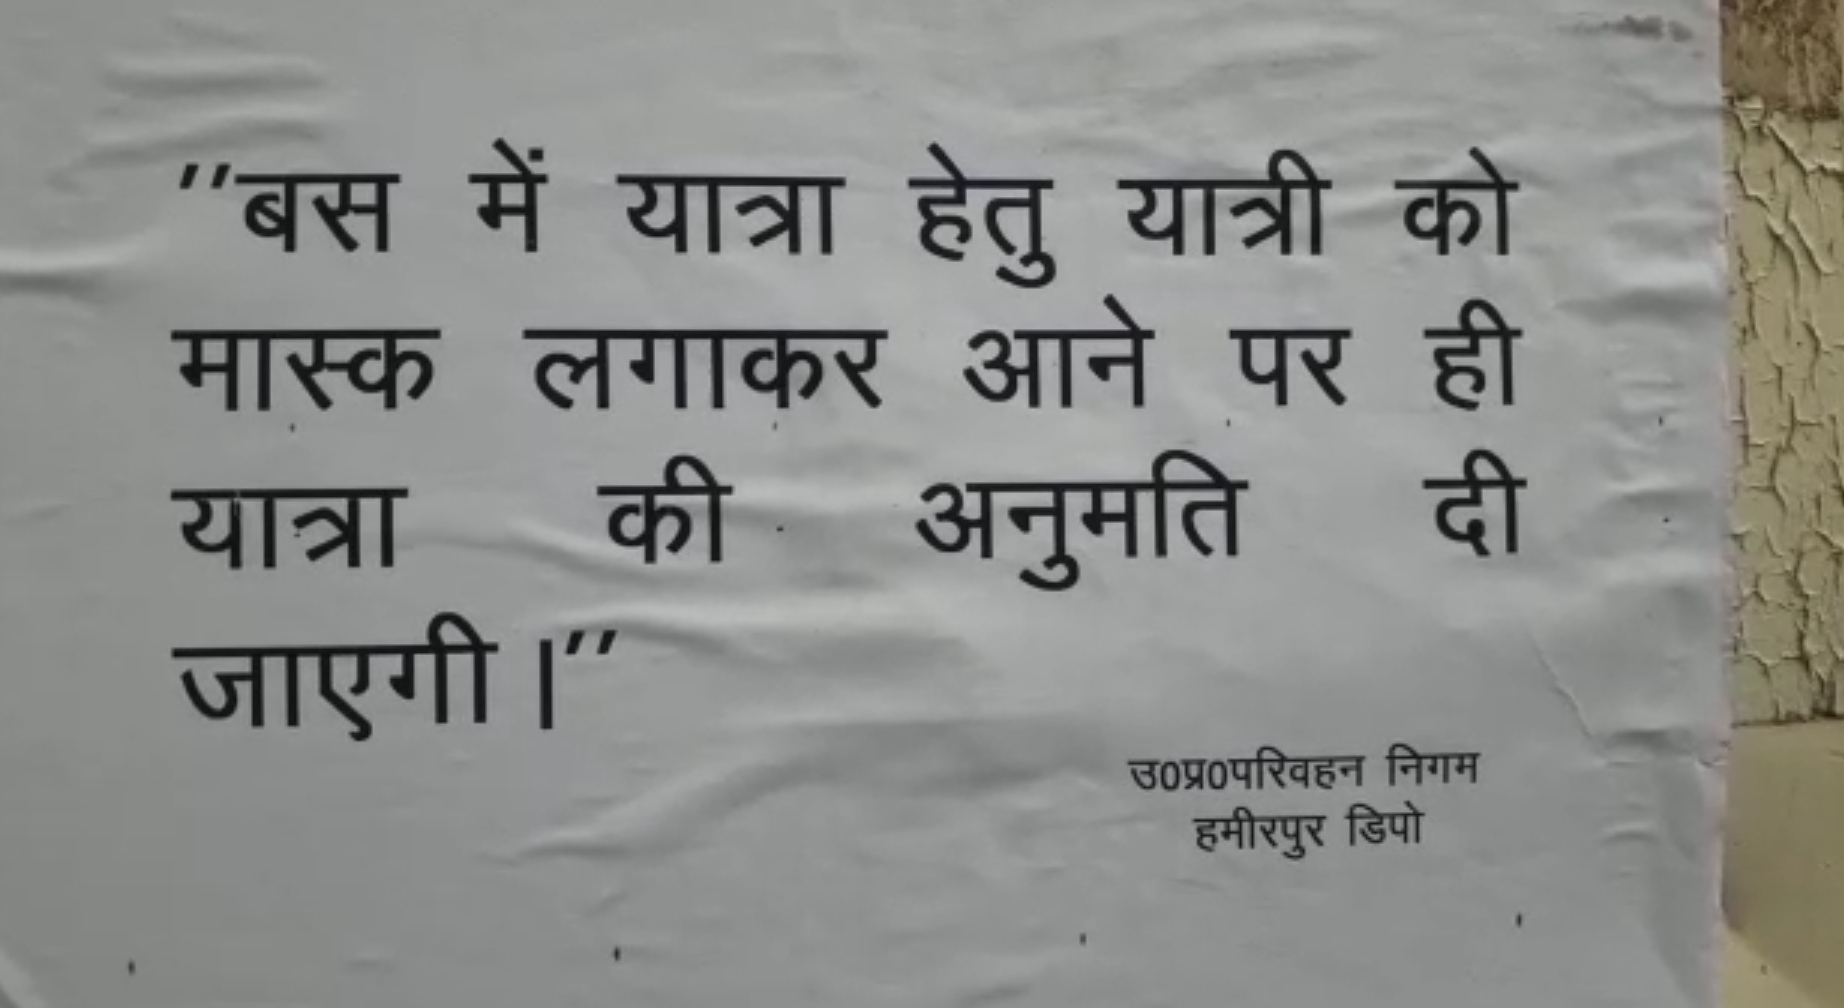 "बस में यात्रा हेतु यात्री को
मास्क लगाकर आने पर ही
यात्रा की अनुमति दी
जाएगी।"
उ0प्र0परिवहन निगम
हमीरपुर डिपो